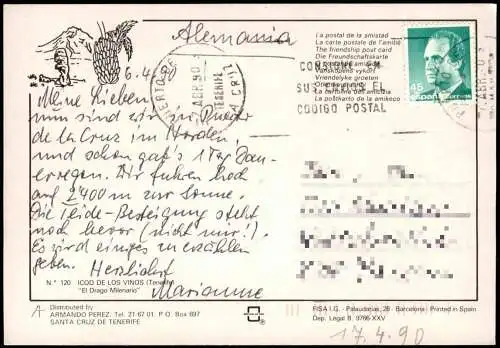 Alemania
6.4.90
Meine Lieben,
nun sind wir in Puerto
de la Cruz im Norden,
und schon gab's 1 Tag Dau-
erregen. Wir fuhren hoch
auf 2'400 m zur Sonne.
Die Teide-Besteigung steht
noch bevor (nicht mir!).
Es wird einiges zu erzählen
geben. Herzlichst
Marianne
N.º 120 ICOD DE LOS VINOS (Tenerife)
"El Drago Milenario"
A
Distributed by
ARMANDO PEREZ. Tel. 21 67 01 - P.O Box 697
SANTA CRUZ DE TENERIFE
PUERTO DE LA CRUZ
ABR 90
TENERIFE
La postal de la amistad
La carte postale de l'amitié
The friendship post card
Die Freundschaftskarte
Vriendelijke groeten
La cartolina dell'amicizia
La poŝtkarto de la amikeco
CONSIGNE EN
SUS ENVIOS EL
CODIGO POSTAL
45
España
FISA I.G. - Palaudarias, 26 - Barcelona - Printed in Spain
Dep. Legal B. 9765-XXV
17.4.90